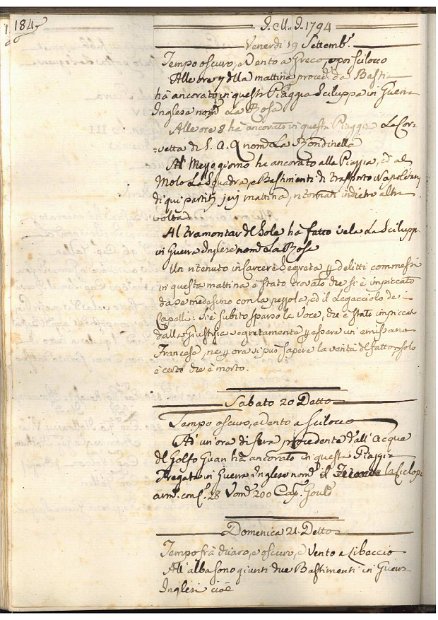 184
1794
Venerdì 19 Settemb.
Tempo oscuro, e Vento a Greco, e poi Sciloco
Alle ore 7 della mattina proced. da Bastia
ha ancorato in questa Piaggia Sciluppa in Guerra
Inglesa nom. La Rosa
Alle ore 8 ha ancorato in questa Piaggia La Cor-
vetta di S. A. R. nom. La Rondinella
Al Mezzo giorno ha ancorato alla Piaggia, ed al
Molo la Squadra, e Bastimenti di Trasporto Napoletani
di qui partiti mattina, ritornati indietro altra
volta
Al tramontar del Sole ha fatto vela la Sciluppa
in Guerra Inglese nom. La Rosa
Un ritenuto in Carcere Segreta delitti commessi
in questa mattina è stato trovato che si è impiccato
da se medesimo con la e il legacciolo de
Capelli: si è subito sparso la voce, che è stato impiccato
dalla Giustizia segretamente essere un emissario
Francese, ne ora si può sapere la verità del fatto, solo
è certo che è morto.
Sabato 20 Detto
Tempo oscuro, e vento a Scilocco
Ad un'ora di sera procedente dall'Acque
del Golfo Guan ha ancorato in questa Piaggia
Fregata in Guerra Inglese nom. il la Ciclope
arm. con C. 28 Uom. 200 Cap.
Domenica 21 Detto
Tempo frà chiaro, e oscuro, e Vento a Libeccio
All'alba sono giunti due Bastimenti in Guerra
Inglesi cioè